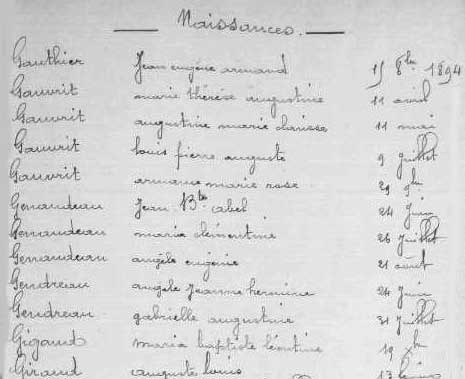 Naissances.
Gauthier Jean eugène armand 15 8bre 1894
Gauvrit marie thérèse augustine 11 avril
Gauvrit augustine marie clarisse 11 mai
Gauvrit louis pierre auguste 9 juillet
Gauvrit armand marie rose 29 9bre
Genaudeau Jean Bte abel 24 Juin
Genaudeau maria clémentine 26 Juillet
Genaudeau angèle eugénie 21 août
Gendreau angèle Jeanne hermine 24 Juin
Gendreau gabrielle augustine 31 Juillet
Gigaud maria baptiste léontine 19
Giraud auguste louis 13